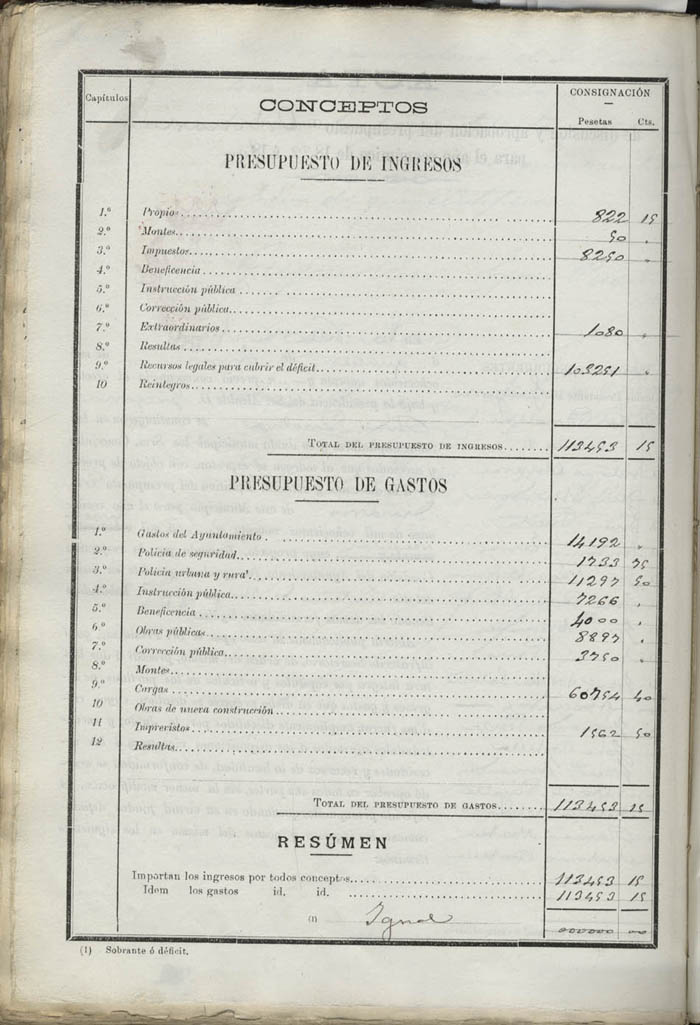 Capítulos CONCEPTOS CONSIGNACIÓN
Pesetas Cts.
PRESUPUESTO DE INGRESOS
1.º Propios 822 15
2.º Montes 50 "
3.º Impuestos 8250 "
4.º Beneficencia
5.º Instrucción pública
6.º Corrección pública
7.º Extraordinarios 1080 "
8.º Resultas
9.º Recursos legales para cubrir el déficit 103251 "
10 Reintegros
TOTAL DEL PRESUPUESTO DE INGRESOS 113453 15
PRESUPUESTO DE GASTOS
1.º Gastos del Ayuntamiento 14192 "
2.º Policia de seguridad 1733 75
3.º Policia urbana y rural 11297 50
4.º Instrucción pública 7266 "
5.º Beneficencia 4000 "
6.º Obras públicas 8897 "
7.º Corrección pública 3750 "
8.º Montes
9.º Cargas 60754 40
10 Obras de nueva construcción
11 Imprevistos 1562 50
12 Resultas
TOTAL DEL PRESUPUESTO DE GASTOS 113453 15
RESÚMEN
Importan los ingresos por todos conceptos 113453 15
Idem los gastos id. id. 113453 15
(1) Igual 000000 00
(1) Sobrante ó déficit.